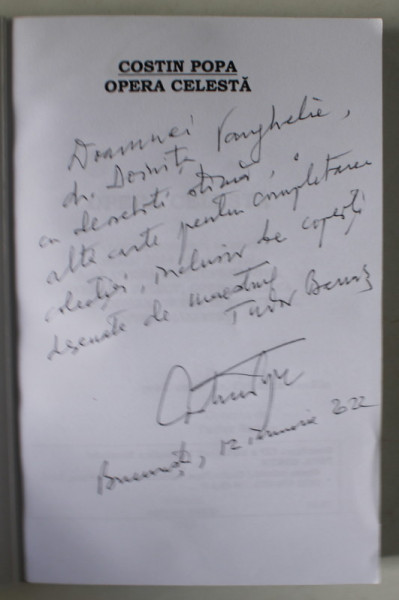 COSTIN POPA
OPERA CELESTĂ
Doamnei
dr. Doinița Vanghelie,
cu deosebită stimă, o
altă carte pentru completarea
colecției, inclusiv de coperți
desenate de maestrul
Tudor Banuș
București, 12 ianuarie 2022